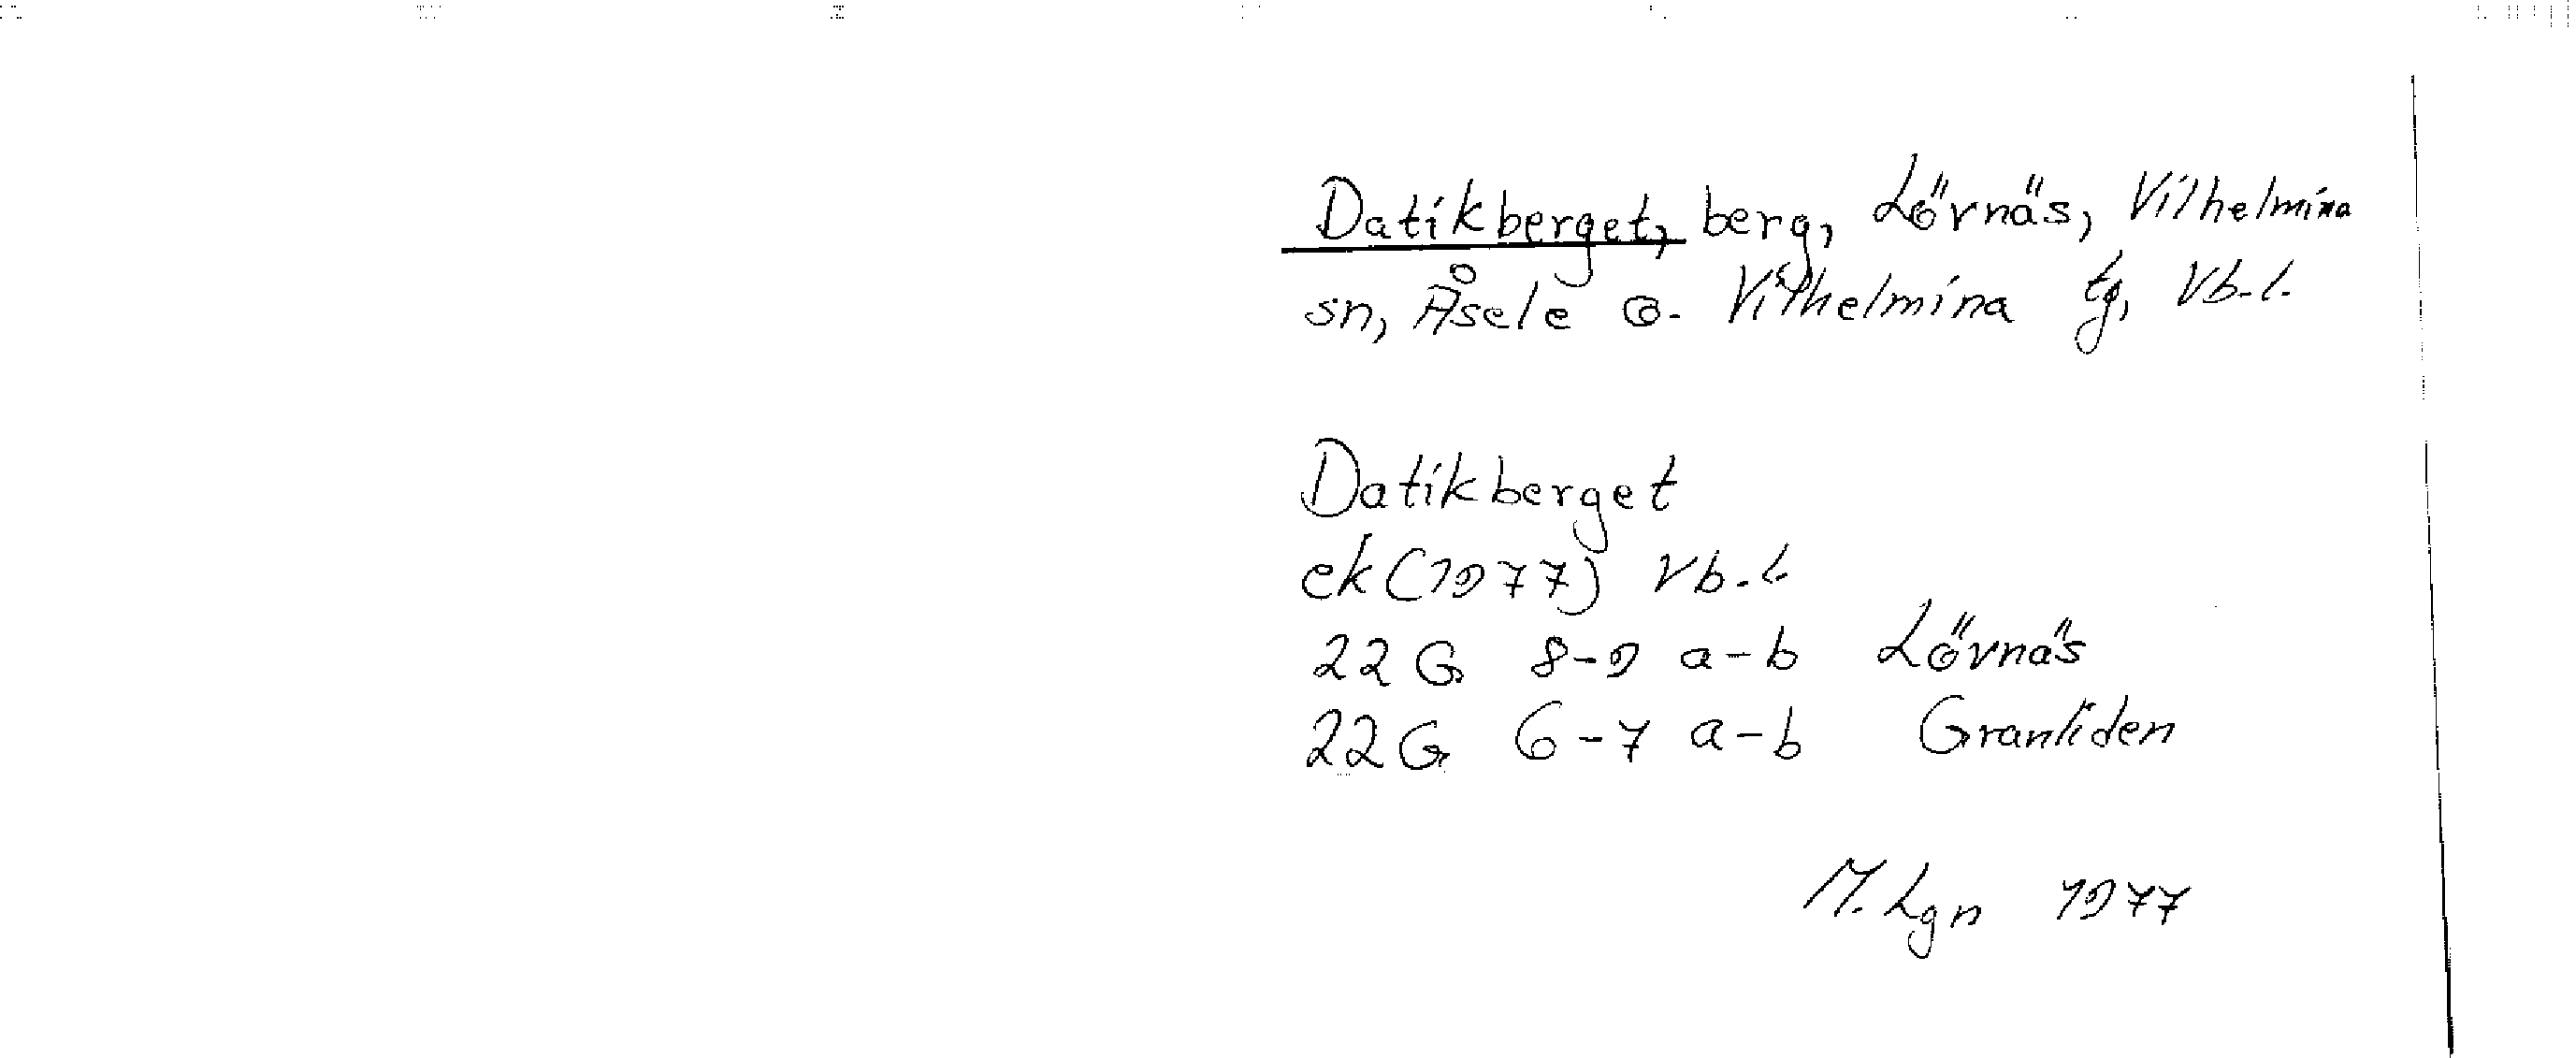 Datikberget, berg, Lövnäs, Vilhelmina
sn, Åsele o. Vilhelmina tg, Vb. l.
Datikberget
ek (1977) Vb. l.
22 G 8-9 a-b Lövnäs
22 G 6-7 a-b Granliden
M. Lgn 1977